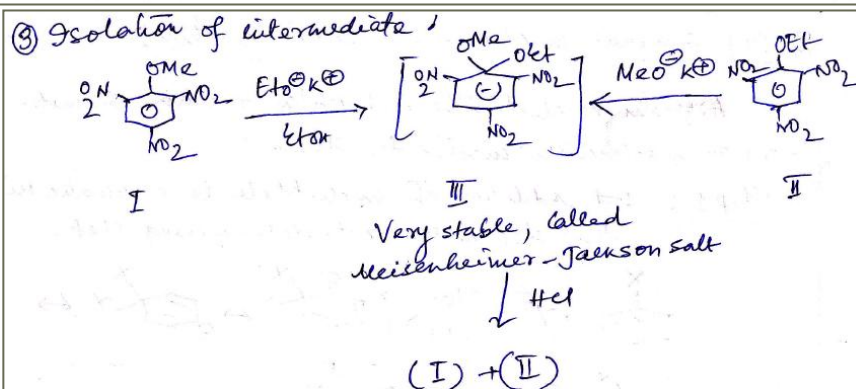 ③ Isolation of intermediate :
OMe
O₂N NO₂
NO₂
I
EtO⊖K⊕
EtOH
OMe
OEt
O₂N (-) NO₂
NO₂
III
MeO⊖K⊕
OEt
NO₂ NO₂
NO₂
II
Very stable, called
Meisenheimer-Jackson salt
HCl
(I) + (II)